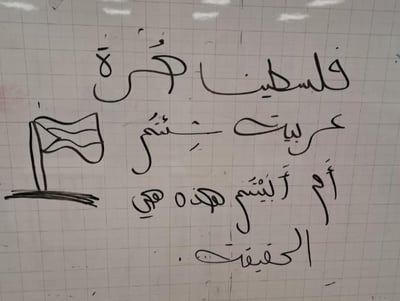 فلسطينا حُرة
عربيت شِئتَم
أَم أَبَيْتَم هذه هي
الحقيقت.